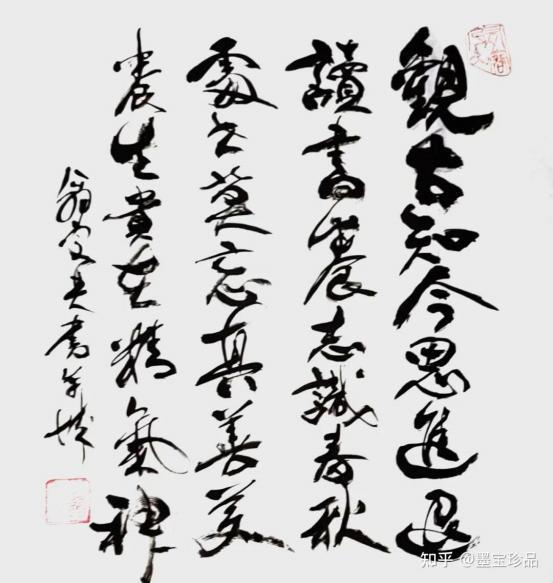 觀古知今思進退
讀書養志識春秋
處世莫忘真善美
養生貴在精氣神
翁 書羊城
知乎 @墨宝珍品